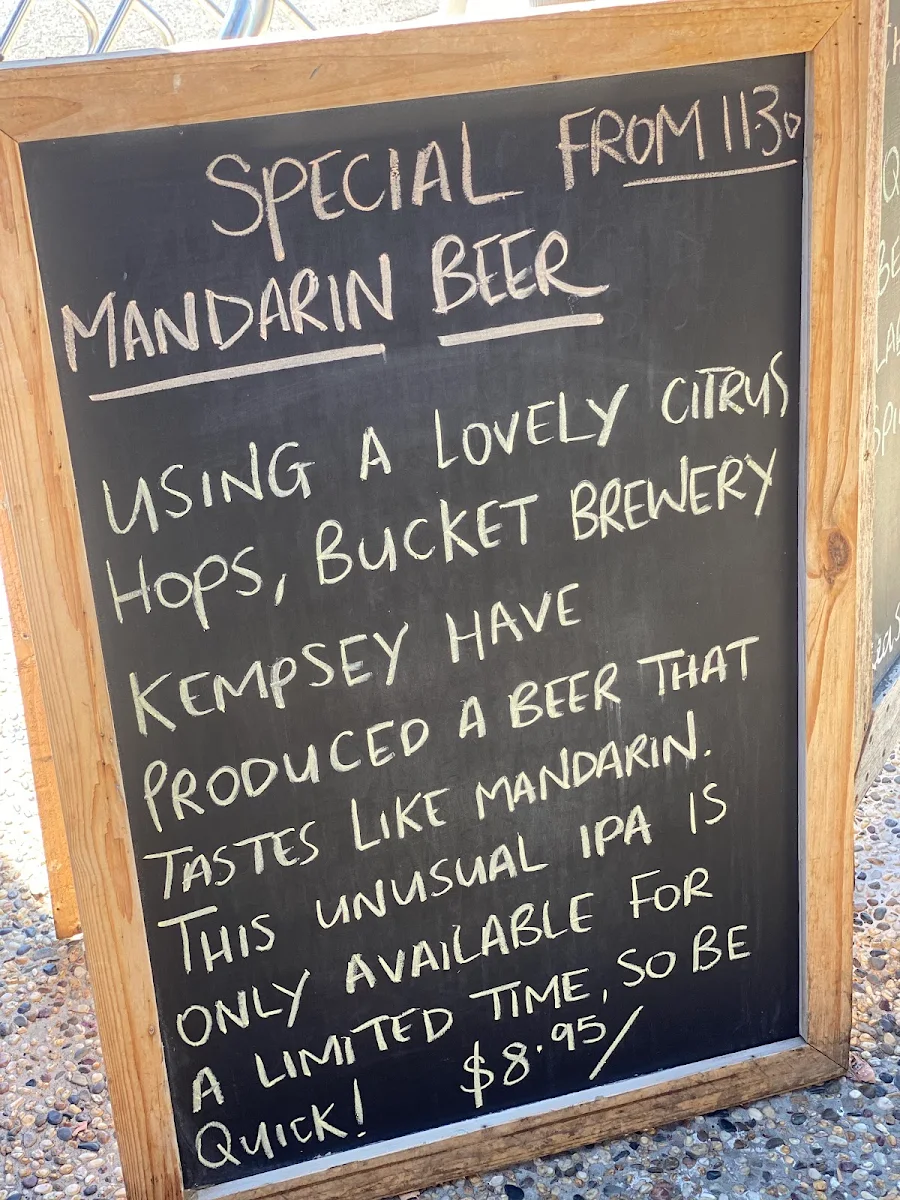 SPECIAL FROM 1130
MANDARIN BEER
USING A LOVELY CITRUS
HOPS, BUCKET BREWERY
KEMPSEY HAVE
PRODUCED A BEER THAT
TASTES LIKE MANDARIN.
THIS UNUSUAL IPA IS
ONLY AVAILABLE FOR
A LIMITED TIME, SO BE
QUICK! $8.95/